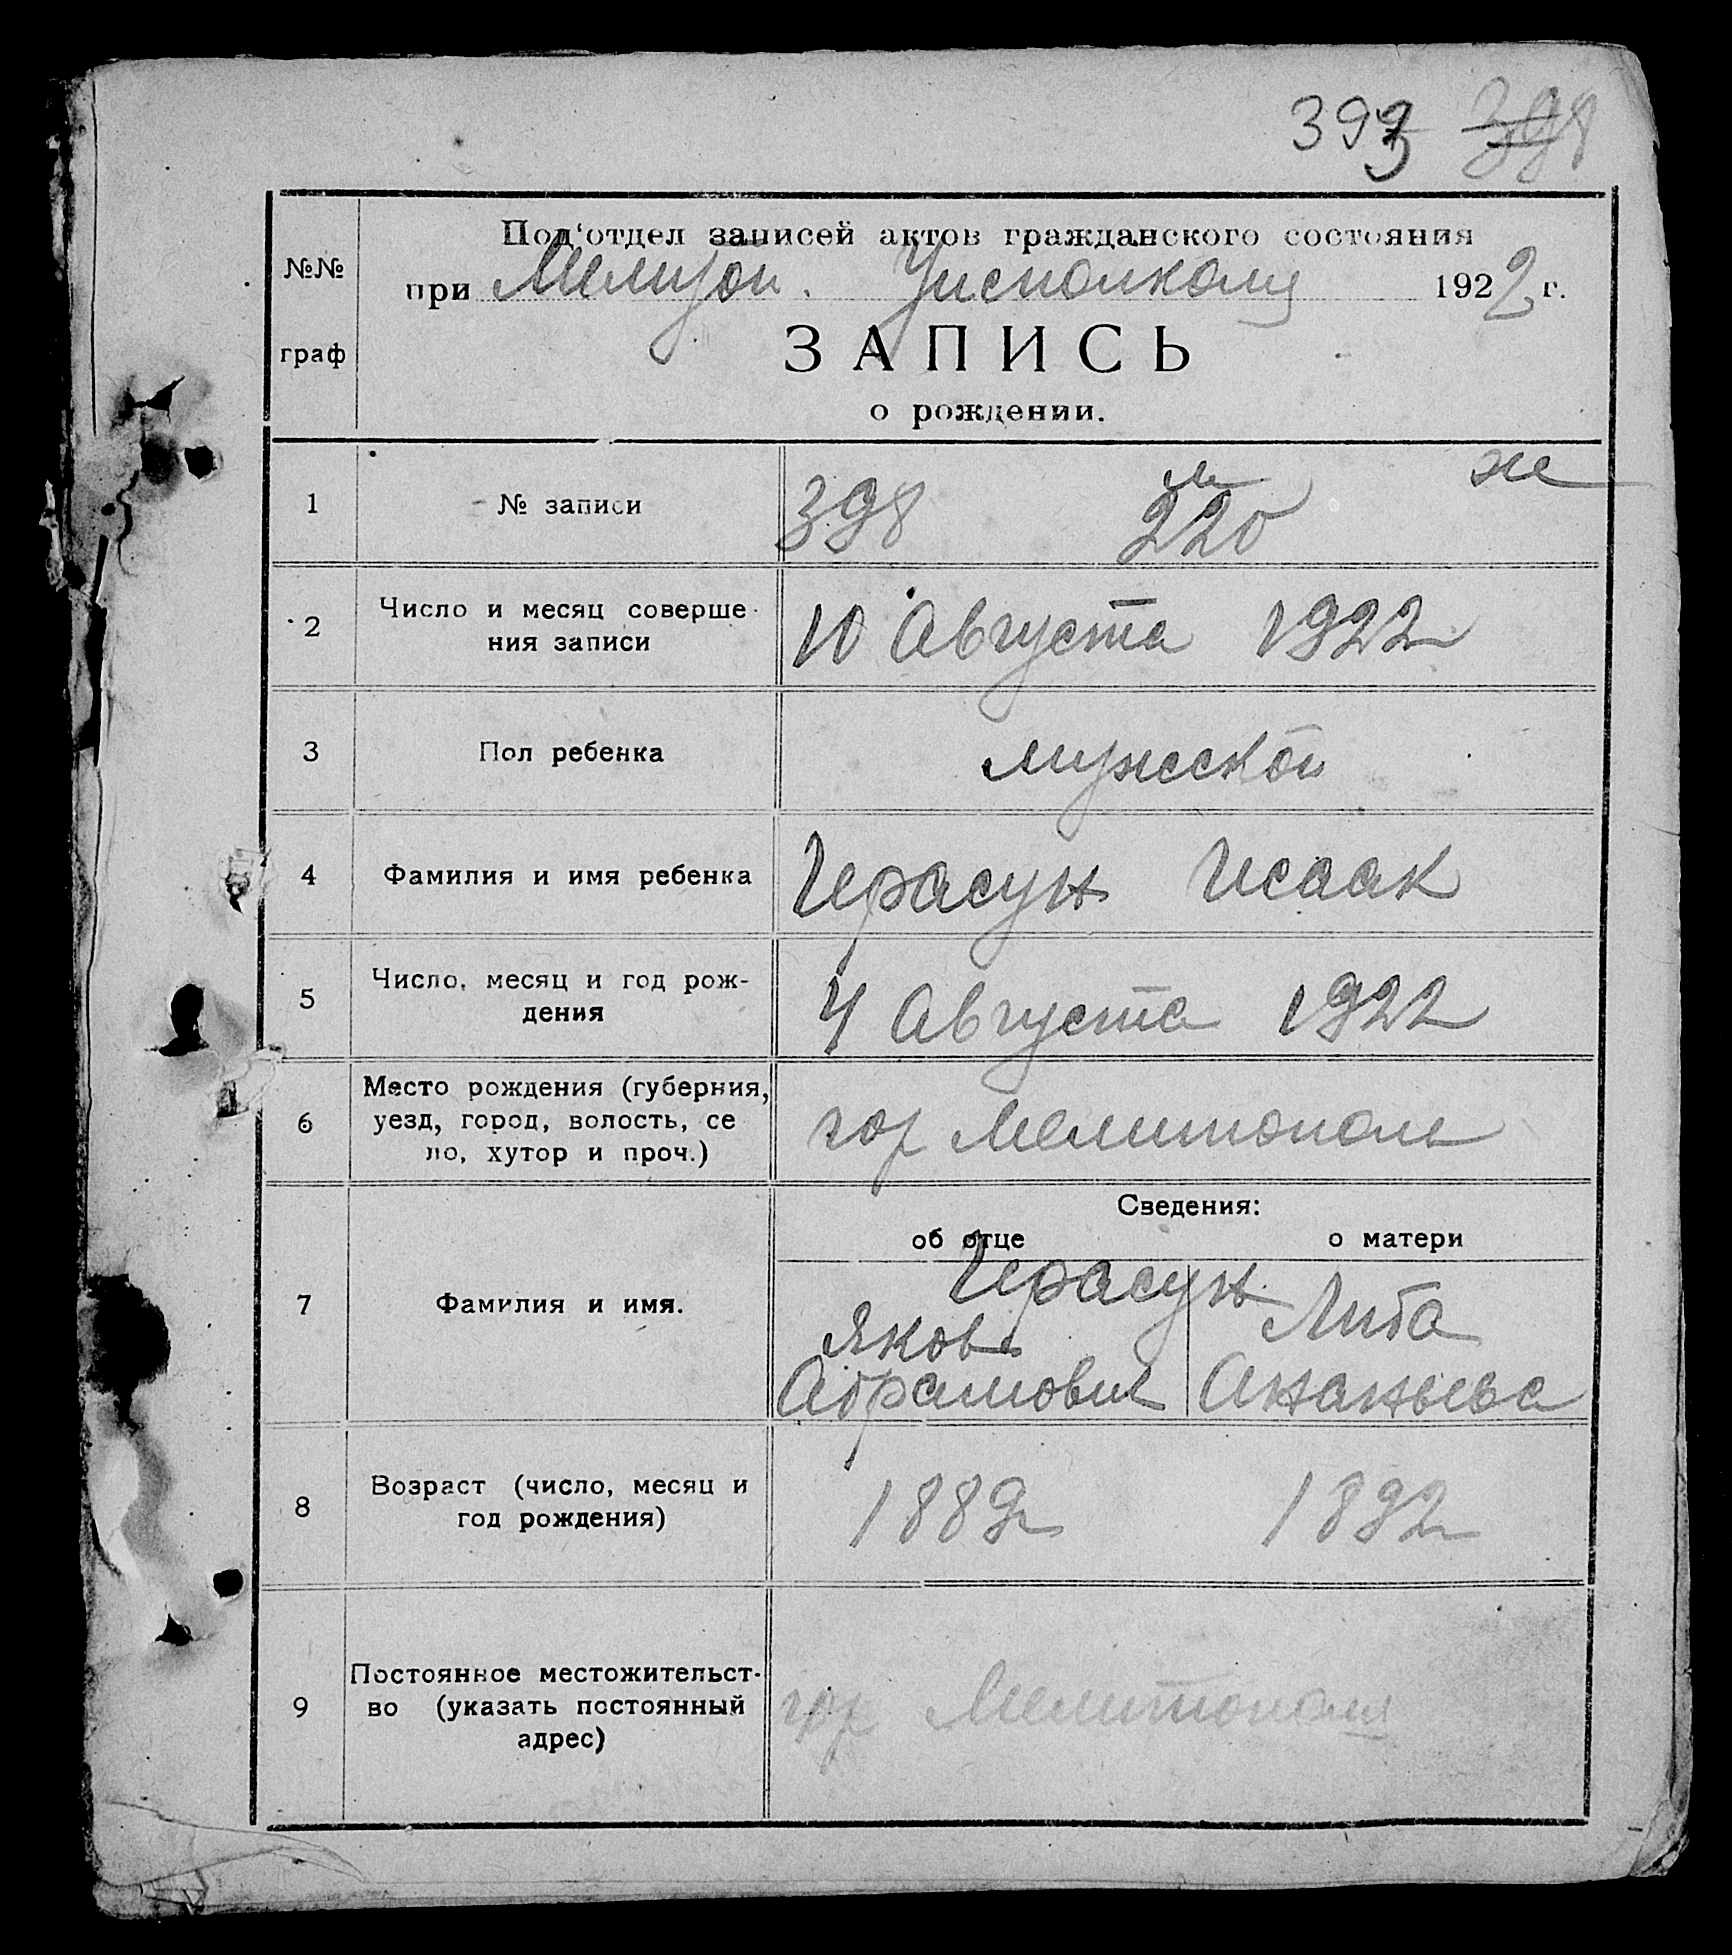 393 398
№№
граф
Под'отдел записей актов гражданского состояния
при Мелитоп. Уисполкому 1922 г.
ЗАПИСЬ
о рождении.
1 № записи 398 м 220 ж
2 Число и месяц соверше
ния записи 10 Августа 1922
3 Пол ребенка мужской
4 Фамилия и имя ребенка Герасун Исаак
5 Число, месяц и год рож-
дения 4 Августа 1922
6 Место рождения (губерния,
уезд, город, волость, се
ло, хутор и проч.) гор Мелитополь
Сведения:
об отце о матери
7 Фамилия и имя. Герасун
Яков Либа
Абрамович Ананьева
8 Возраст (число, месяц и
год рождения) 1889 1892
9 Постоянное местожительст-
во (указать постоянный
адрес) гор Мелитополь